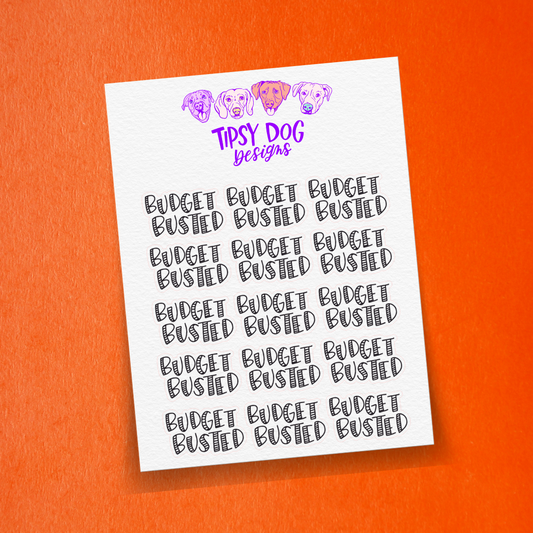 TIPSY DOG
Designs
BUDGET BUDGET BUDGET
BUSTED BUSTED BUSTED
BUDGET BUDGET BUDGET
BUSTED BUSTED BUSTED
BUDGET BUDGET BUDGET
BUSTED BUSTED BUSTED
BUDGET BUDGET BUDGET
BUSTED BUSTED BUSTED
BUDGET BUDGET BUDGET
BUSTED BUSTED BUSTED